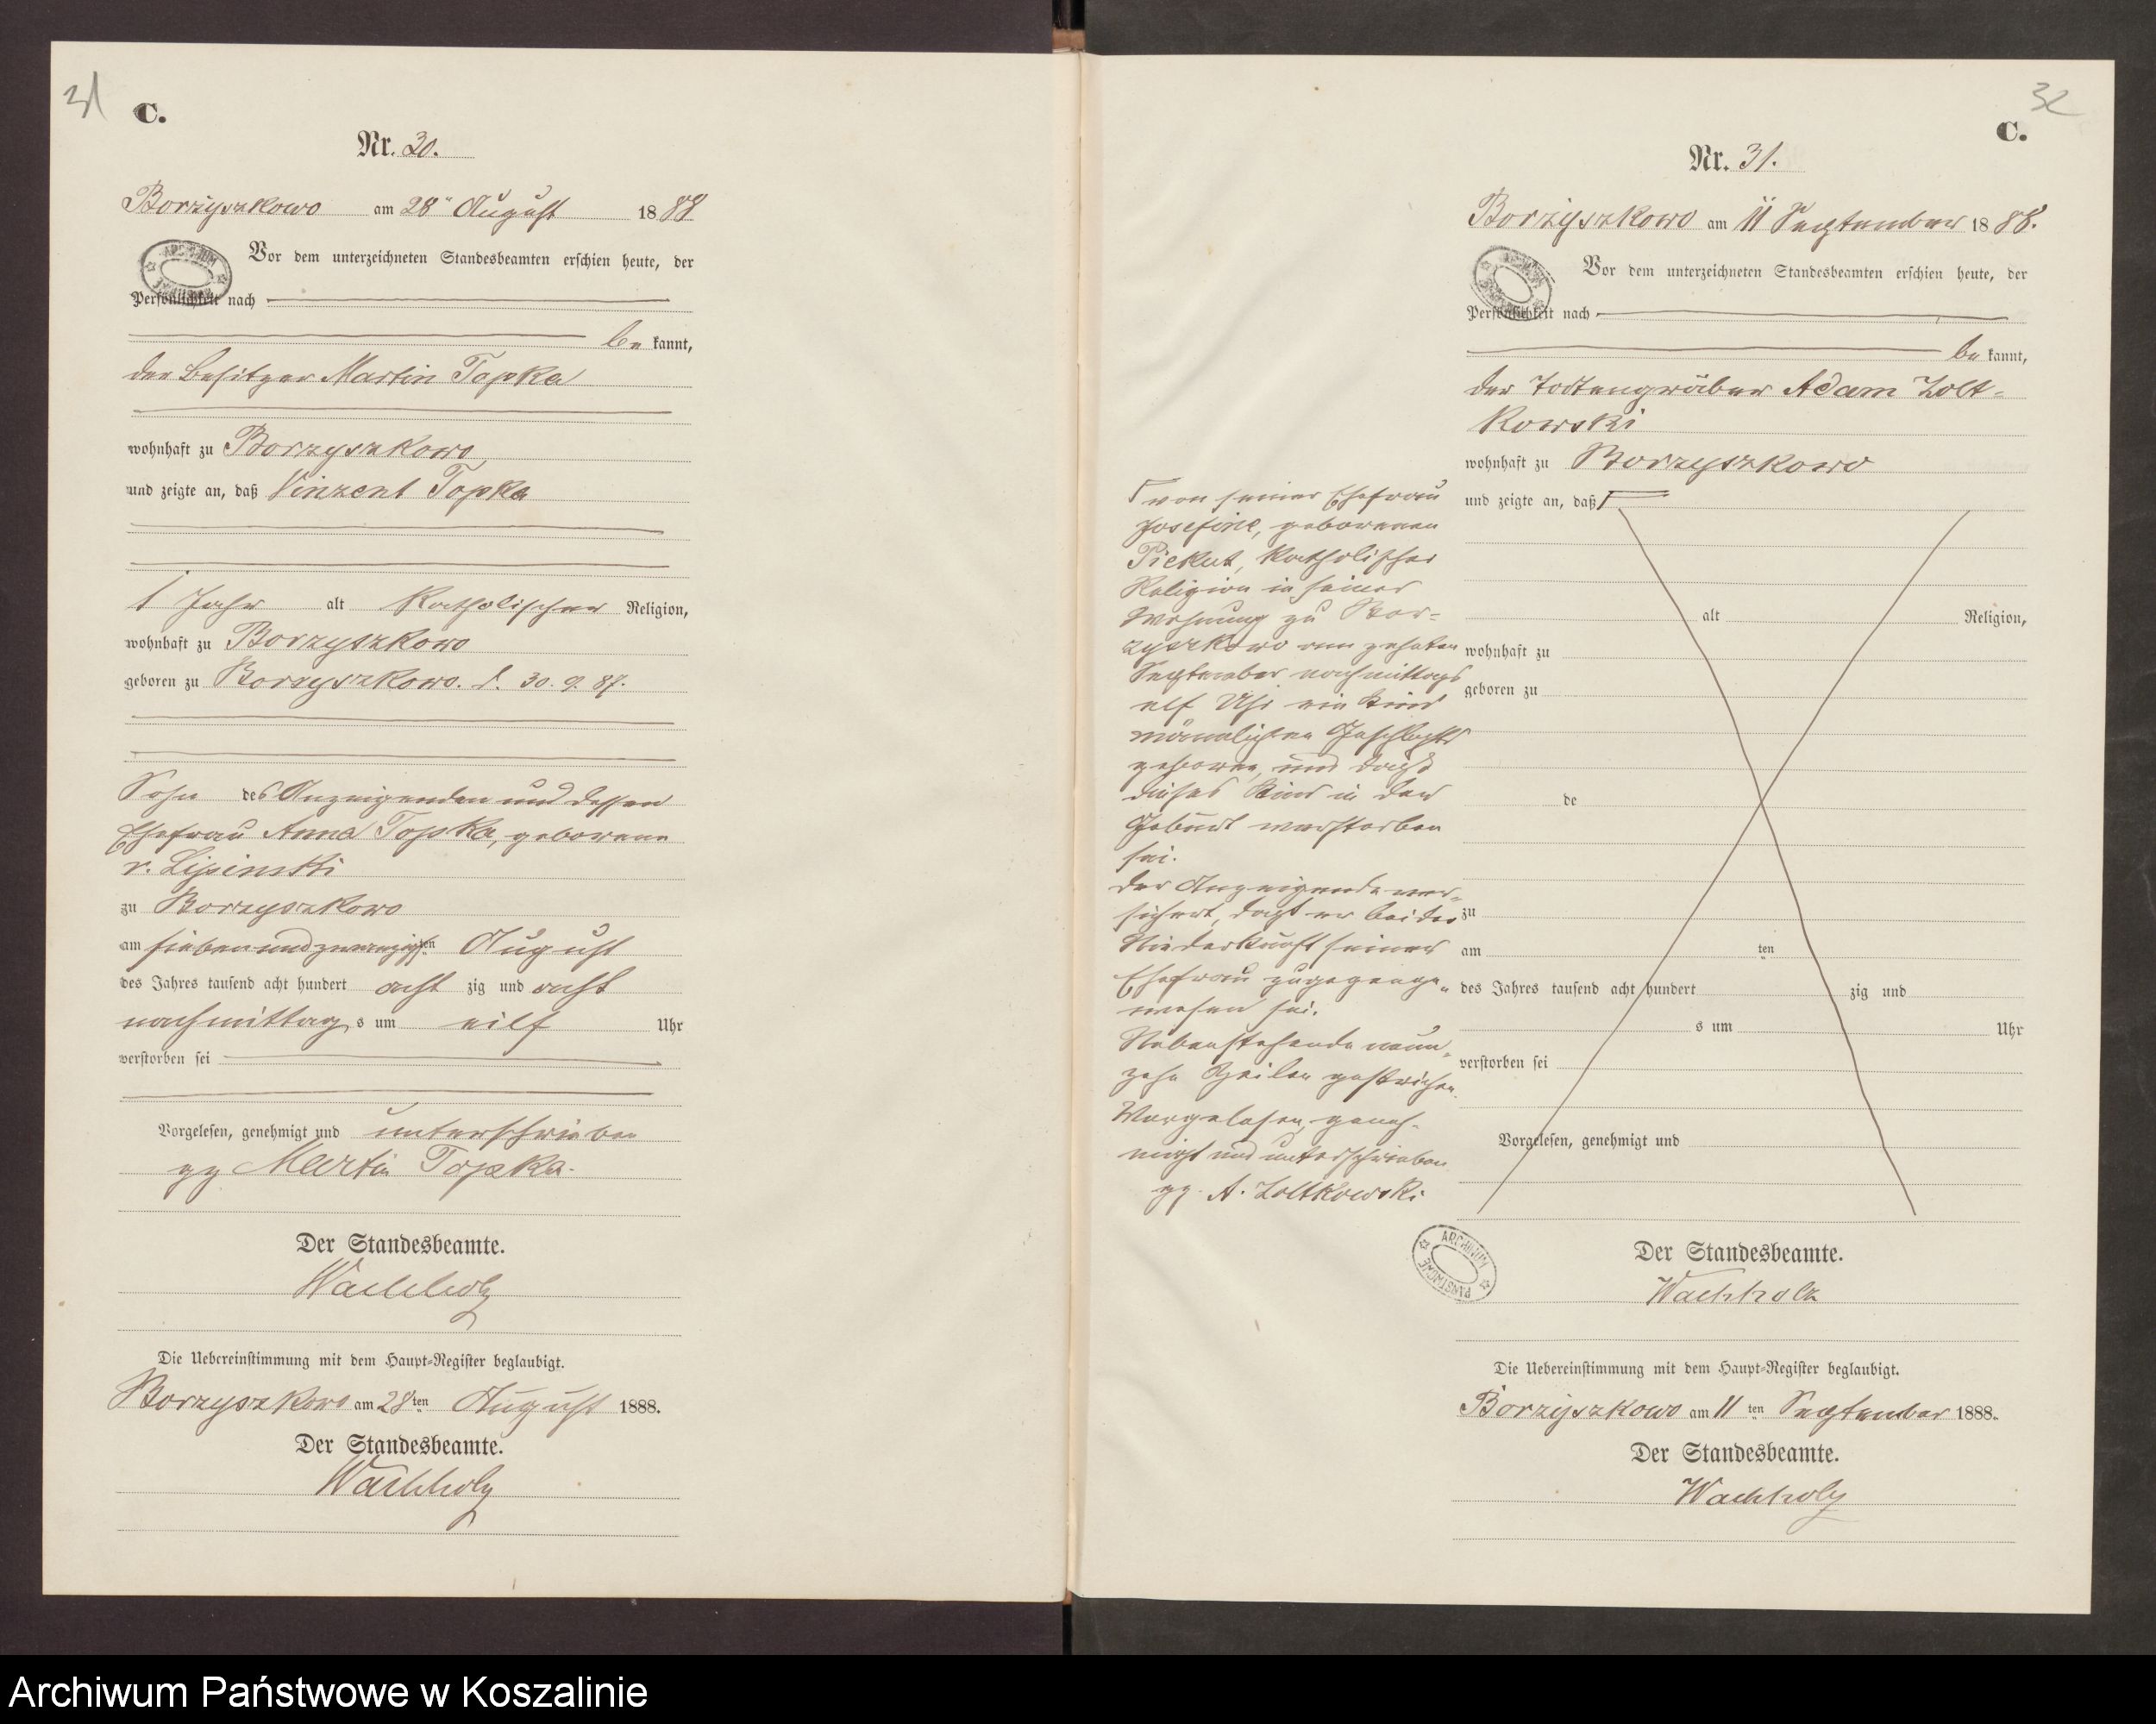 31
C.
Nr. 30.
Borzyszkowo am 28ten August 1888
Vor dem unterzeichneten Standesbeamten erschien heute, der
Persönlichkeit nach
be kannt,
der Besitzer Martin Topka
wohnhaft zu Borzyszkowo
und zeigte an, daß Vinzent Topka
1 Jahr alt katholischer Religion,
wohnhaft zu Borzyszkowo
geboren zu Borzyszkowo. d. 30. 9. 87.
Sohn des Anzeigenden und dessen
Ehefrau Anna Topka, geborene
v. Lipinski
zu Borzyszkowo
am siebenundzwanzigsten August
des Jahres tausend acht hundert acht zig und acht
nachmittag s um eilf Uhr
verstorben sei
Vorgelesen, genehmigt und unterschrieben
gz Martin Topka.
Der Standesbeamte.
Wachholz
Die Uebereinstimmung mit dem Haupt-Register beglaubigt.
Borzyszkowo am 28ten August 1888.
Der Standesbeamte.
Wachholz
32
C.
Nr. 31.
Borzyszkowo am 11 September 1888.
Vor dem unterzeichneten Standesbeamten erschien heute, der
Persönlichkeit nach
be kannt,
der Todtengräber Adam Zolt-
kowski
wohnhaft zu Borzyszkowo
und zeigte an, daß Γ
alt Religion,
wohnhaft zu
geboren zu
de
zu
am ten
des Jahres tausend acht hundert zig und
s um Uhr
verstorben sei
Vorgelesen, genehmigt und
Γ von seiner Ehefrau
Josefine, geborenen
Piekut, katholischer
Religion in seiner
Wohnung zu Bor-
zyszkowo am zehnten
September nachmittags
elf Uhr ein Kind
männlichen Geschlechts
geboren, und daß
dieses Kind in der
Geburt verstorben
sei.
Der Anzeigende ver-
sichert, daß er bei der
Niederkunft seiner
Ehefrau zugegen ge-
wesen sei.
Nebenstehende neun-
zehn Zeilen gestrichen.
Vorgelesen, geneh-
migt und unterschrieben
gz. A. Zoltkowski
ARCHIWUM PAŃSTWOWE
Der Standesbeamte.
Wachholz
Die Uebereinstimmung mit dem Haupt-Register beglaubigt.
Borzyszkowo am 11ten September 1888.
Der Standesbeamte.
Wachholz
Archiwum Państwowe w Koszalinie